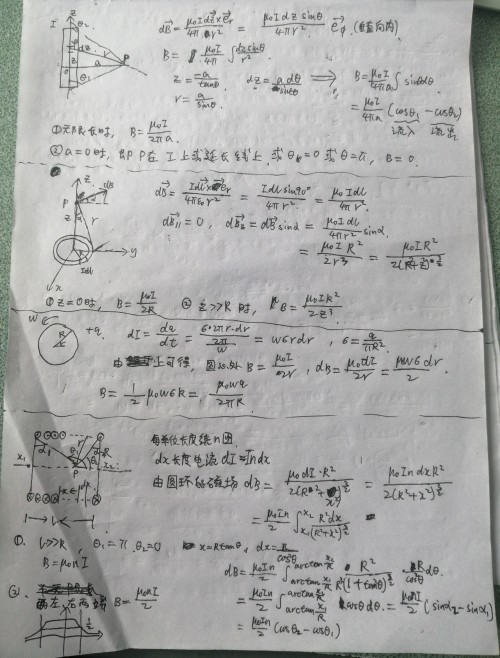 I
z
θ₂
dz
r
a
P
θ₁
dB⃗ = μ₀Idz⃗×e⃗r / 4πr² = μ₀Idz sinθ / 4πr² e⃗φ (垂直向内)
B = μ₀I/4π ∫ dz sinθ / r²
z = -a/tanθ dz = a dθ/sin²θ ⟹ B = μ₀I/4πa ∫ sinθdθ
r = a/sinθ = μ₀I/4πa (cosθ₁ - cosθ₂)
流入 流出
① 无限长时, B = μ₀I/2πa
② a=0时, 即P在I上或延长线上, 或θ=0或θ=π, B=0.
z
dB
P
r
y
x
Idl
dB⃗ = Idl⃗×e⃗r / 4πε₀r² = Idl sin90° / 4πr² = μ₀Idl / 4πr²
dB⃗∥ = 0, dB⃗z = dB⃗ sinα = μ₀Idl / 4πr² sinα
= μ₀IR² / 2r³ = μ₀IR² / 2(R²+z²)^3/2
① z=0时, B = μ₀I/2R ② z>>R 时, B = μ₀IR² / 2z³
W
R
+q
dI = dq/dt = σ·2πr·dr / (2π/W) = Wσrdr, σ = q/πR²
由上可得, 圆心处 B = μ₀I/2r, dB = μ₀dI/2r = μ₀Wσdr/2
B = 1/2 μ₀WσR = μ₀Wq/2πR
每单位长度绕n圈
dx长度电流 dI = Indx
由圆环的磁场 dB = μ₀dI·R² / 2(R²+x²)^3/2 = μ₀IndxR² / 2(R²+x²)^3/2
= μ₀In/2 ∫x₁^x₂ R²dx / (R²+x²)^3/2
① L>>R, θ₁=π, θ₂=0
B = μ₀nI
x = Rtanθ, dx = R/cos²θ
dB = μ₀In/2 ∫ arctan x₁/R ^ arctan x₂/R R² / R³(1+tan²θ)^3/2 · R/cos²θ dθ.
② 两端 B = μ₀nI/2
= μ₀In/2 ∫ arctan x₁/R ^ arctan x₂/R cosθdθ = μ₀nI/2 (sinα₂ - sinα₁)
= μ₀In/2 (cosθ₂ - cosθ₁)